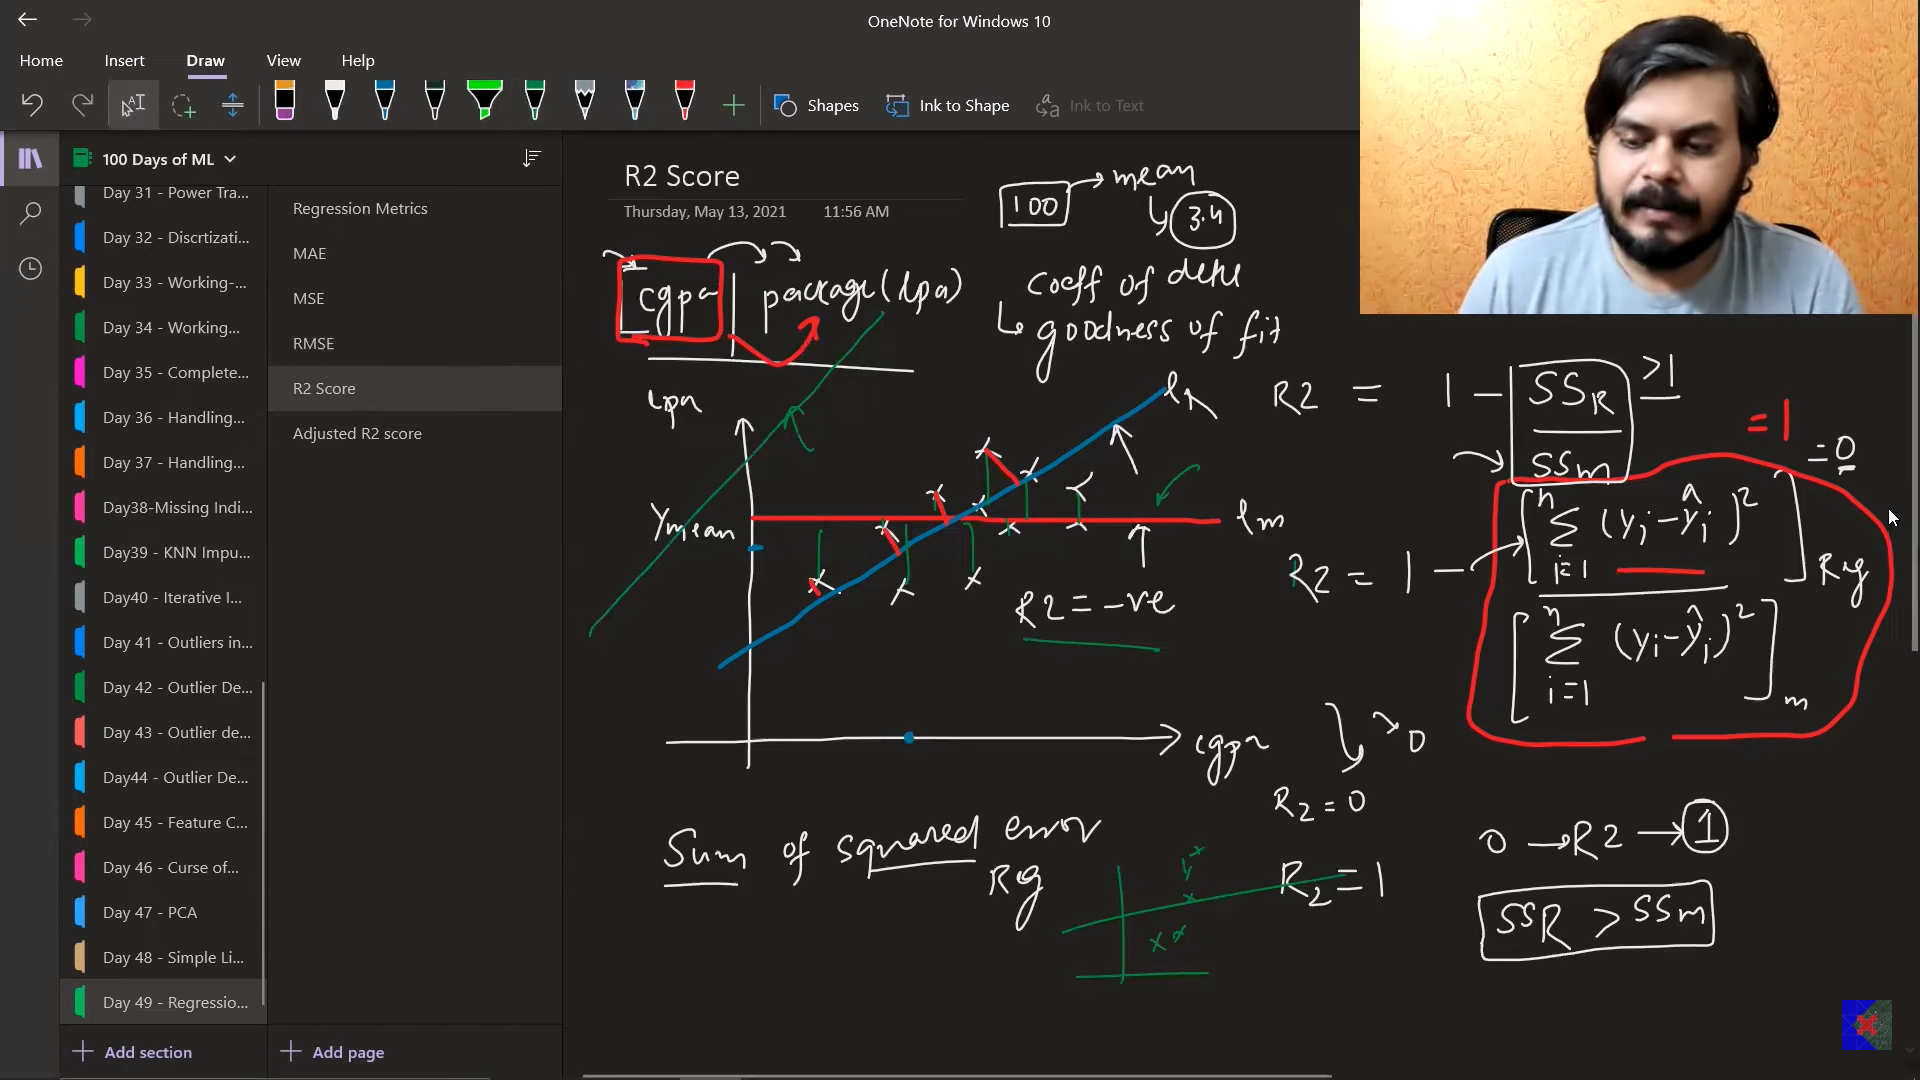 OneNote for Windows 10
Home Insert Draw View Help
Shapes Ink to Shape Ink to Text
100 Days of ML
Day 31 - Power Tra...
Day 32 - Discrtizati...
Day 33 - Working-...
Day 34 - Working...
Day 35 - Complete...
Day 36 - Handling...
Day 37 - Handling...
Day38-Missing Indi...
Day39 - KNN Impu...
Day40 - Iterative I...
Day 41 - Outliers in...
Day 42 - Outlier De...
Day 43 - Outlier de...
Day44 - Outlier De...
Day 45 - Feature C...
Day 46 - Curse of...
Day 47 - PCA
Day 48 - Simple Li...
Day 49 - Regressio...
Add section
Regression Metrics
MAE
MSE
RMSE
R2 Score
Adjusted R2 score
Add page
R2 Score
Thursday, May 13, 2021 11:56 AM
100 mean
3.4
cgpa package(lpa)
coeff of
goodness of fit
lpa
Ymean
lm
cgpa
R2 = -ve
R2 = 1 - SSR / SSm >1
= 1
= 0
R2 = 1 - [ n Σ i=1 (yi - ŷi)² ] Reg
[ n Σ i=1 (yi - ŷi)² ] m
0
R2 = 0
R2 = 1
Sum of squared error
Rg
0 → R2 → 1
SSR > SSm